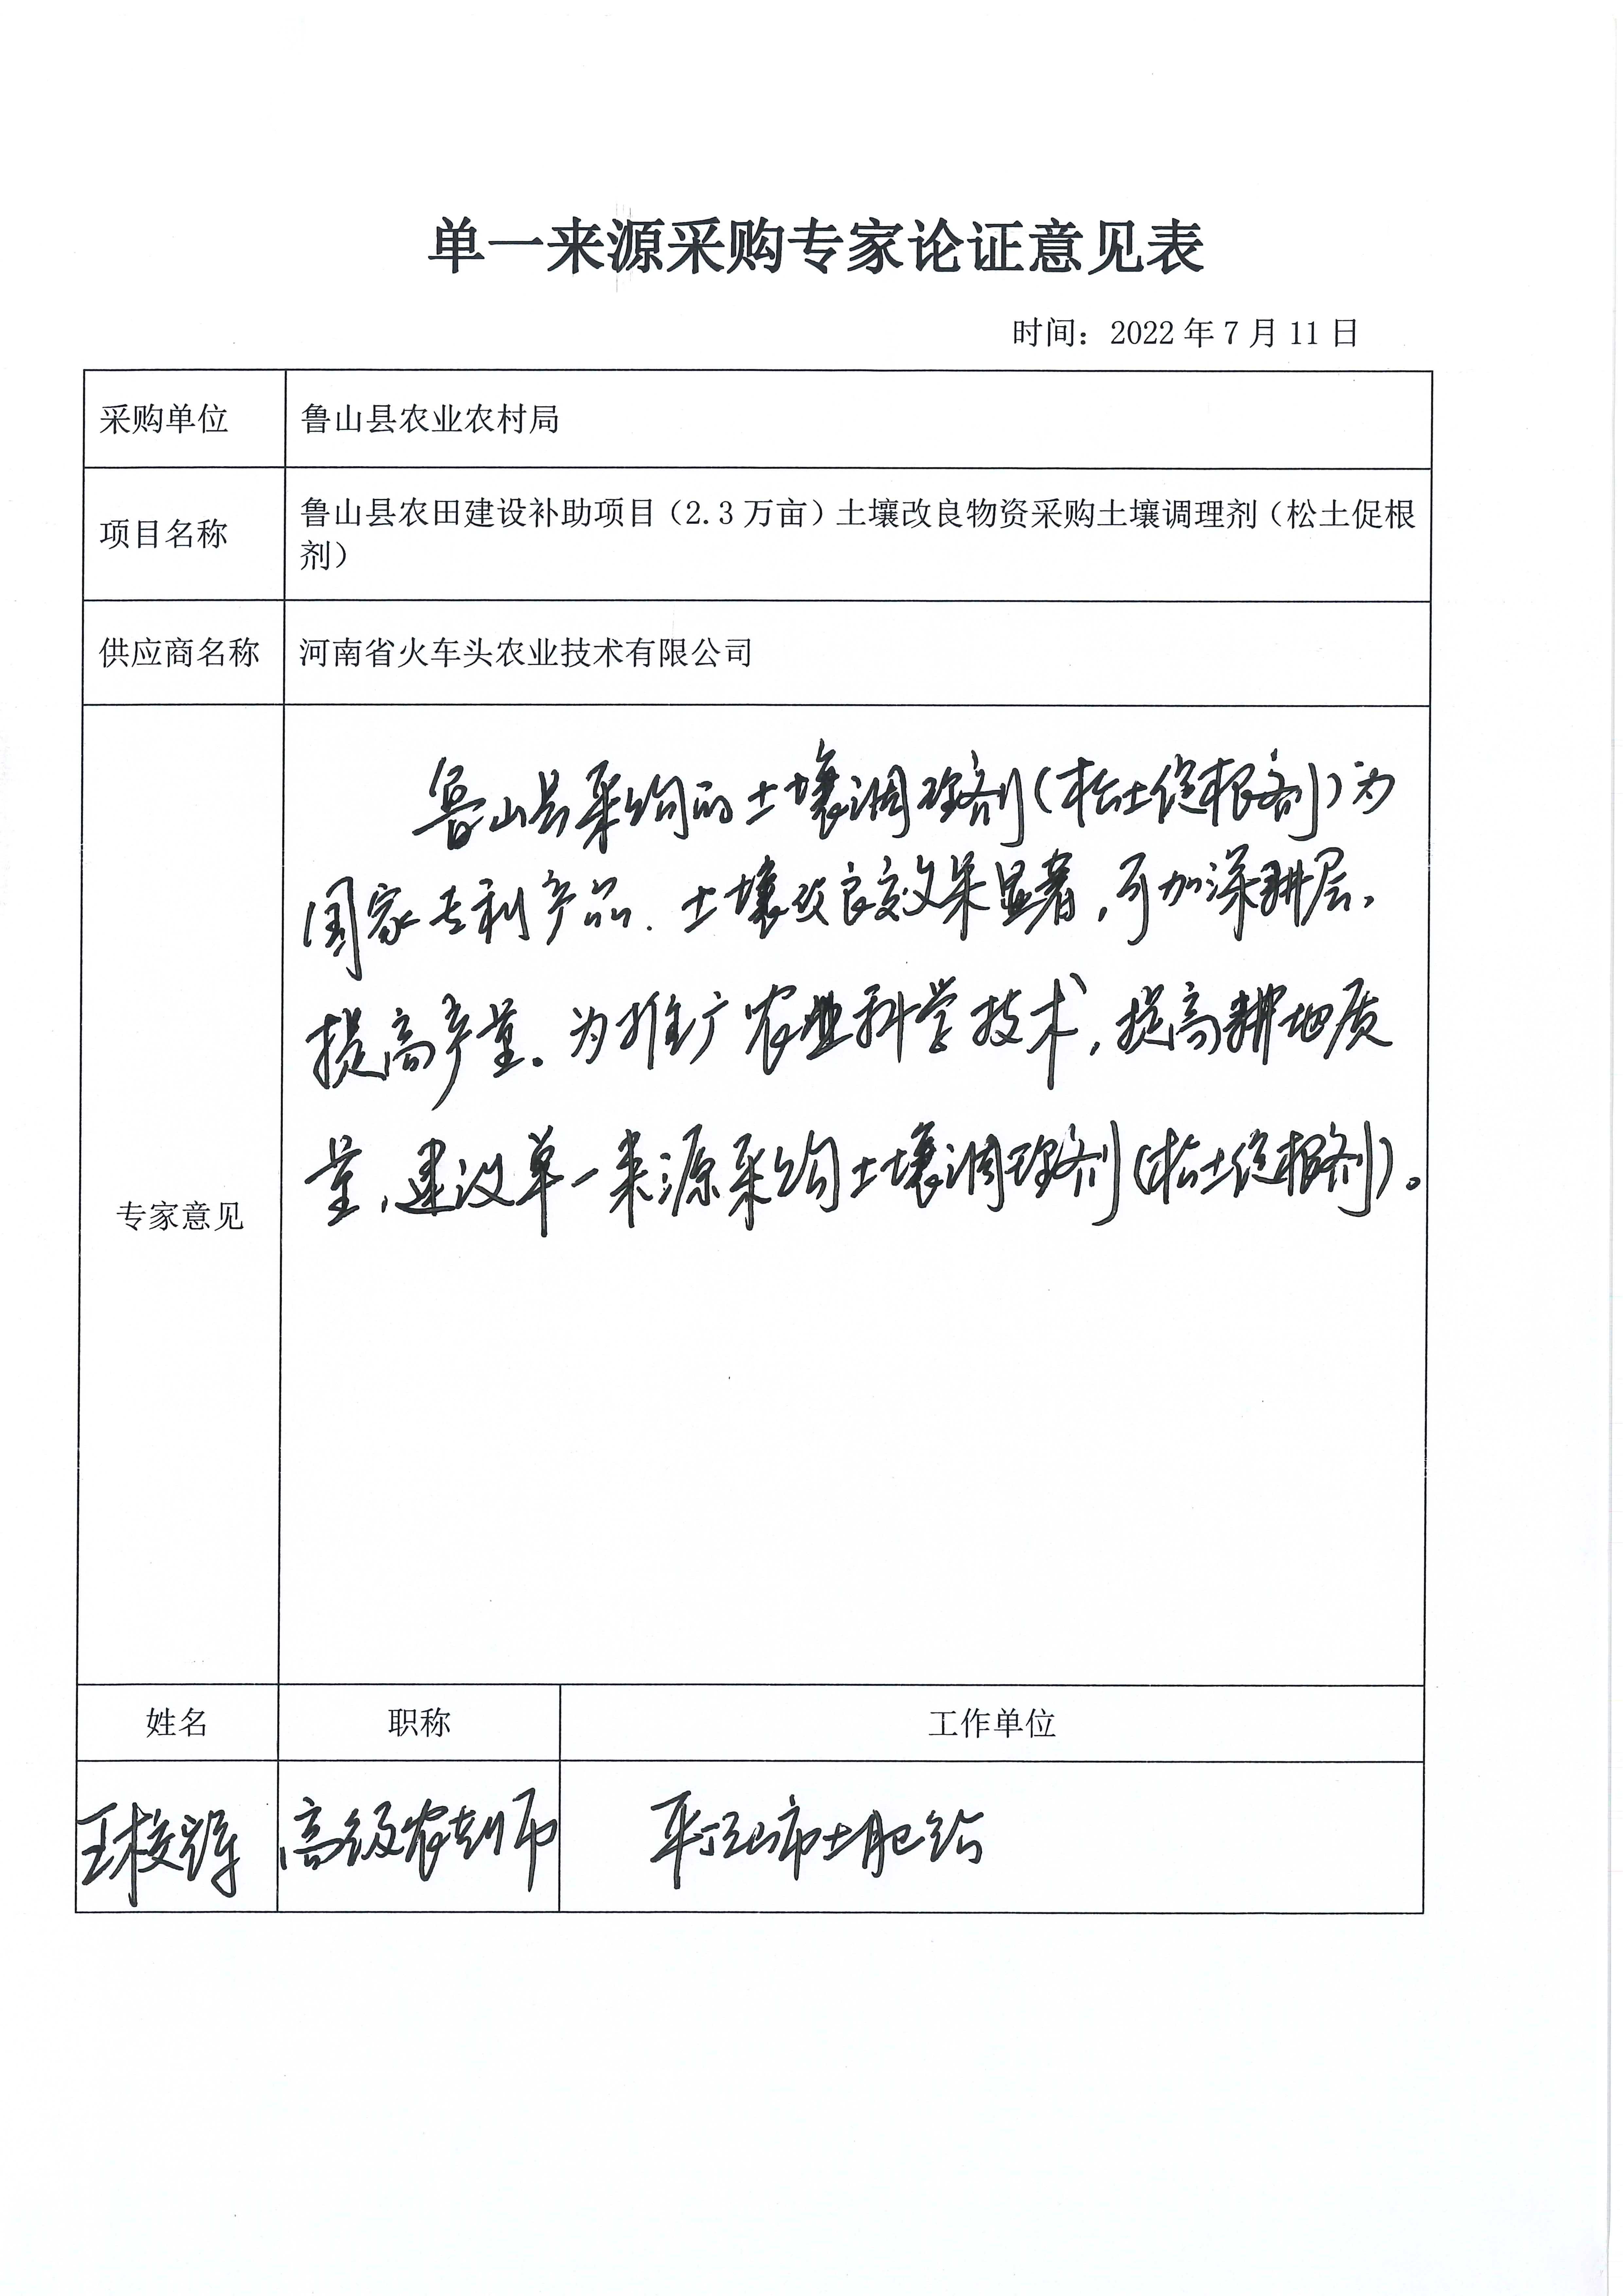 单一来源采购专家论证意见表
时间：2022年7月11日
采购单位
鲁山县农业农村局
项目名称
鲁山县农田建设补助项目（2.3万亩）土壤改良物资采购土壤调理剂（松土促根
剂）
供应商名称
河南省火车头农业技术有限公司
专家意见
鲁山县采购的土壤调理剂（松土促根剂）为
国家专利产品.土壤改良效果显著,可加深耕层,
提高产量。为推广农业科学技术,提高耕地质
量,建议单一来源采购土壤调理剂（松土促根剂）。
姓名
职称
工作单位
王校辉
高级农艺师
平顶山市土肥站